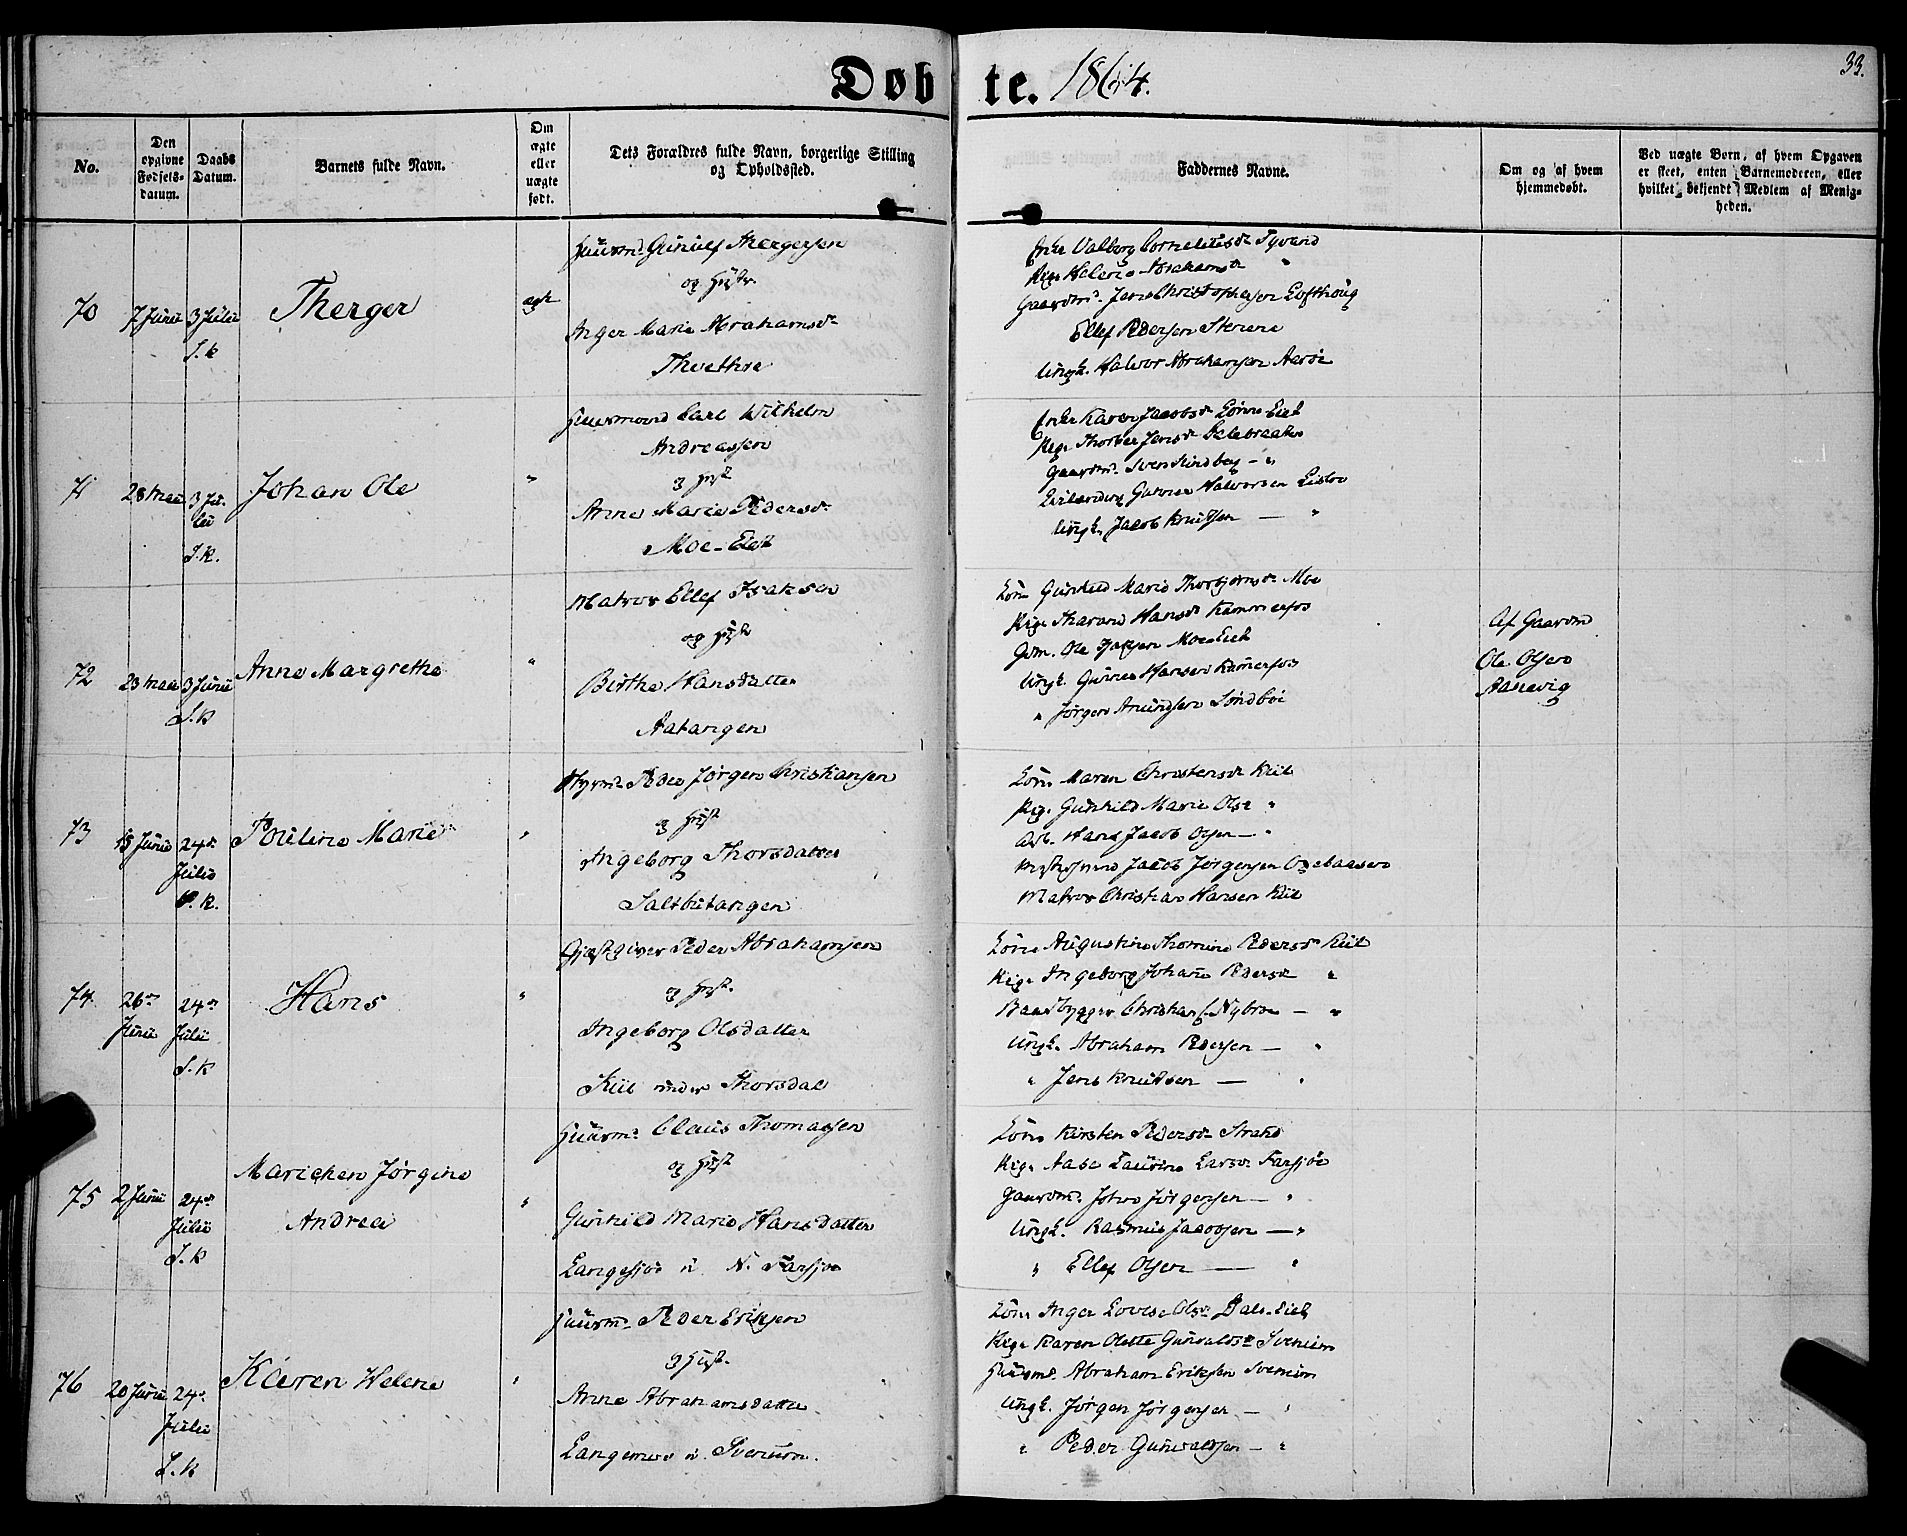 Døbte. 1864.
33.
No.
Den opgivne Fødsels-datum.
Daabs Datum.
Barnets fulde Navn.
Om ægte eller uægte født.
Dets Forældres fulde Navn, borgerlige Stilling og Opholdssted.
Faddernes Navne.
Om og af hvem hjemmedøbt.
Ved uægte Børn, af hvem Opgaven er skeet, enten Barnemoderen, eller hvilket bekjendt Medlem af Menigheden.
70
7 Junii
3 Julii
S.k
Therger
ægte
Huusmd. Gunulf Thergersen
og Hustr.
Inger Marie Abrahamsdr
Thvethre
Enke Valborg Corneliusdr Tyvand
Pige Helene Abrahamsdr "
Gaardmd. Jens Christophersen Lofthoug
Ellef Pedersen Sterene
Ungk. Halvor Abrahamsen Aarøe
71
28 Maii
3 Ju-
lii
S.k.
Johan Ole
"
Huusmand Carl Wilhelm
Andreassen
og Hust
Anne Marie Pedersdr
Moe-Eiet
Enke Karen Jacobsdr Eiet
Pige Jensdr
Gaardmd. Sven Lindberg - "
Gunner Halvorsen
Ungk. Jacob Knudsen - "
72
23 Maii
3 Junii
S.k
Anne Margrethe
"
Matros Ellef Isaksen
og Hust
Birthe Hansdatter
Aatangen
Kone Gunhild Marie Thorbjørnsdr Moe
Pige Hansdr Kammerfos
Gdm. Ole Isaksen Moe-Eiet
Ungk. Gunner Hansen Kamerfos
" Jørgen Amundsen Søndbøe
Af Gaardm
Ole Olsen
Aasevig
73
15 Junii
24de
Julii
S.k.
Pouline Marie
"
Styrmd. Peder Jørgen Christiansen
og Hust
Ingeborg Thorsdatter
Saltbutangen
Kone Maren Christensdr Kiil
Pige Gunhild Marie Olsdr "
Arb. Hans Jacob Olsen - "
Jacob Jørgensen
Matros Christian Hansen Kiil
74
26de
Junii
24de
Julii
S.k
Hans
"
Gjæstgiver Peder Abrahamsen
og Hust.
Ingeborg Olsdatter
Kiil under Thorsdal
Kone Augustine Thomine Pedersdr Kiil
Pige Ingeborg Johane Pedersdr "
Baadbygger Christian Nybroe - "
Ungk. Abraham Pedersen - "
" Jens Knudsen - "
75
2 Junii
24de
Julii
S.k
Marichen Jørgine
Andrea
"
Huusmd. Claus Thomassen
og Hust
Gunhild Marie Hansdatter
Langesjøe u. N. Farsjøe
Kone Kirsten Pedersdr Strand
Pige Aase Laurine Larsdr Farsjøe
Gaardmd. John Jørgensen - "
Ungk. Rasmus Jacobsen - "
" Ellef Olsen - "
76
20 Junii
24de
Julii
S.k
Karen Helene
"
Huusmd. Peder Eriksen
og Hust.
Anne Abrahamsdatter
Langemyr u. Svenum.
Kone Inger Lovise Olsdr Dals-Eiet
Pige Karen Olette Gunvaldsdr Svenum
Huusmd. Abraham Eriksen Svenum
Ungk. Jørgen Jørgensen - "
" Peder Gunvaldsen - "